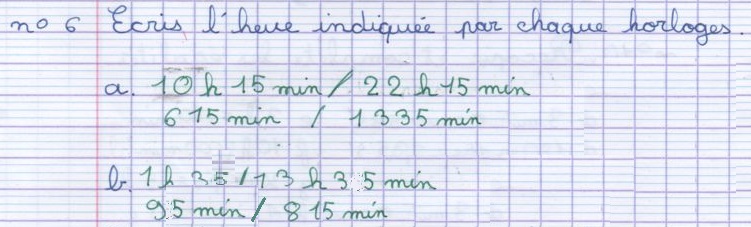 no 6 Ecris l'heure indiquée par chaque horloges.
a. 10 h 15 min / 22 h 15 min
615 min / 1335 min
b. 1 h 35 / 13 h 35 min
95 min / 815 min